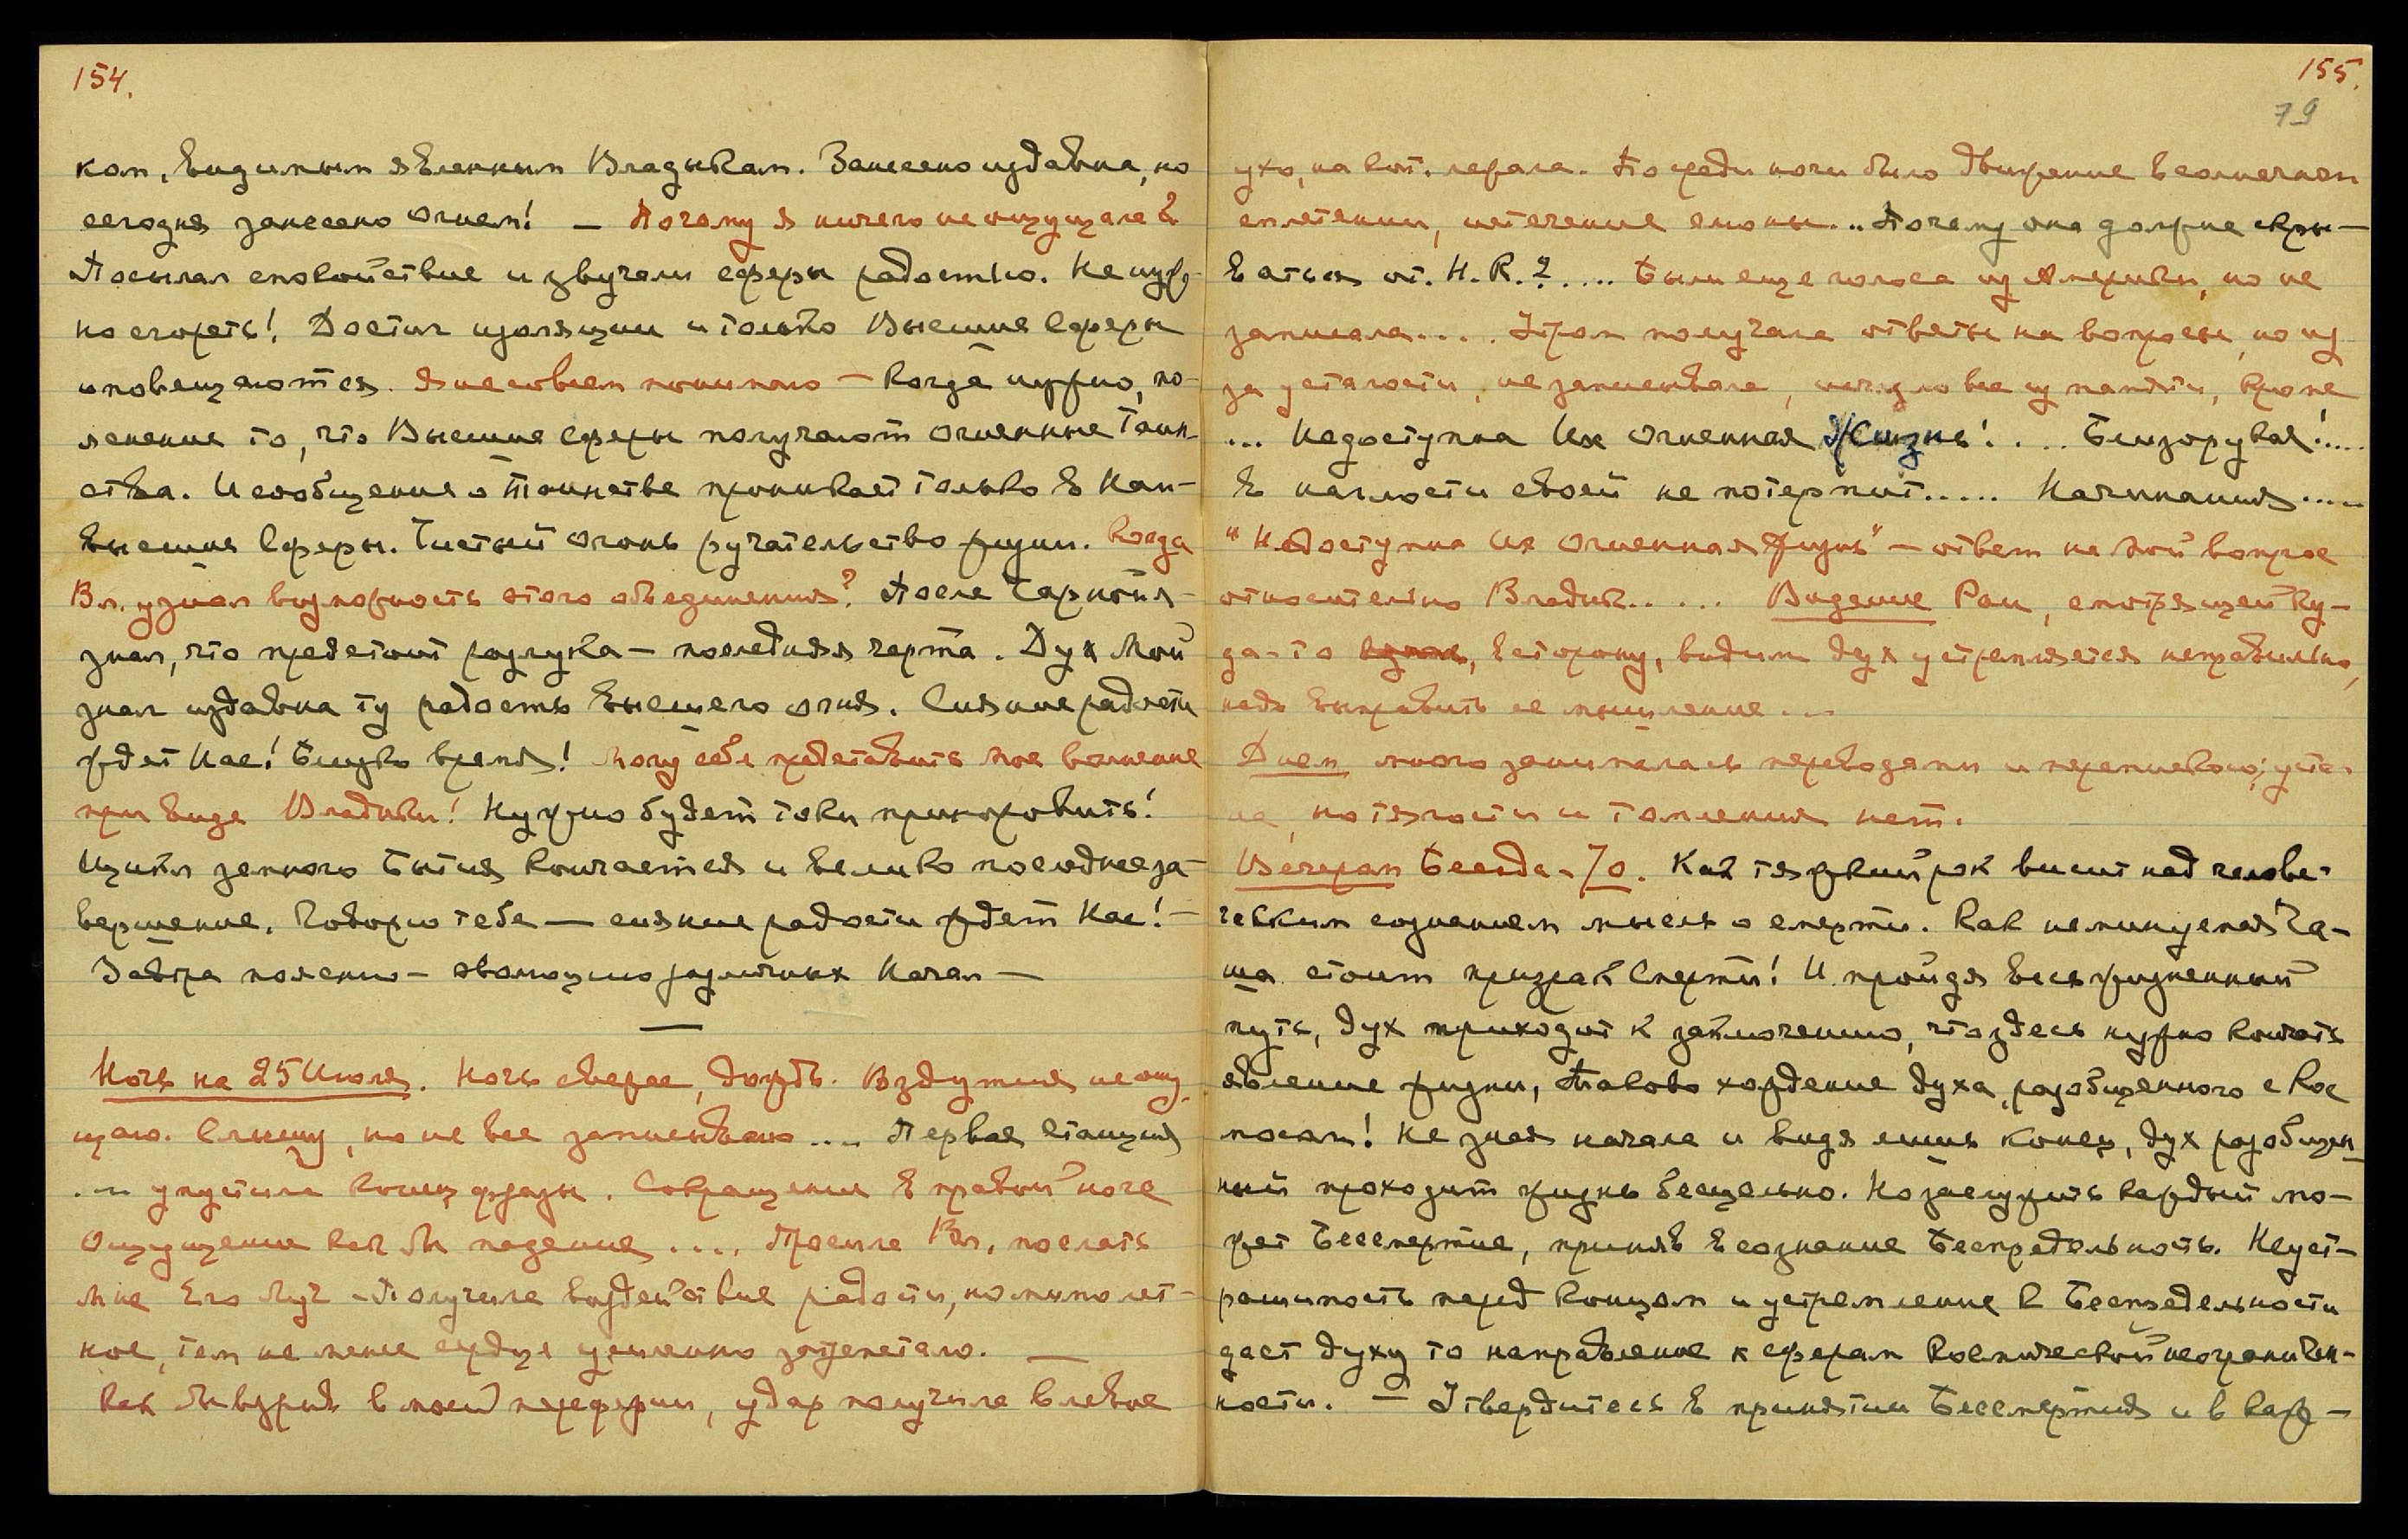 154.
ком, видимым явленным Владыкам. Занесено издавна, но
сегодня занесено Огнем! — Почему я ничего не ощущала?
Посылал спокойствие и звучали сферы радостью. Не нуж-
но сгореть! Достиг изоляции и только Высшие Сферы
оповещаются. Я не совсем понимаю — Когда нужно, по-
яснение то, что Высшие сферы получают Огненные Таин-
ства. И сообщение о Таинстве проникает только в Наи-
высшие Сферы. Чистый Огонь ручательство жизни. Когда
Вл. узнал возможность этого объединения? После
знал, что предстоит разлука — последняя черта. Дух Мой
знал издавна ту радость высшего огня. Сияние радости
ждет Нас! Близко время! Могу себе представить мое волнение
при виде Владыки! Нужно будет токи приноровить!
Цикл земного Бытия кончается и велико последнее за-
вершение. Говорю тебе — сияние радости ждет Нас! —
Завтра поясню — эволюцию различных Начал —
Ночь на 25 Июля. Ночь свежее, дождь. Вздутия не ощу-
щаю. Слышу, но не все записываю .... Первая станция
... упустила конец фразы. Сокращение в правой ноге
Ощущение как бы падения .... Просила Вл. послать
мне Его Луч — Получила воздействие радости, но мимолет-
ное, тем не менее сердце усиленно затрепетало. —
Как бы взрыв в моей периферии, удар получила в левое
155.
79
ухо, на кот. лежала. Посреди ночи было движение в солнечном
сплетении, истечение слюны... Почему она должна скры-
ваться от. Н.К.? .... Были еще голоса из Америки, но не
записала.... Утром получала ответы на вопросы, но из
за усталости, не записывала, исчезло все из памяти, кроме
... Недоступна Их Огненная Жизнь! ... Близорукая!....
В наглости своей не потерпит..... Начинания.....
"Недоступна Их Огненная Жизнь" — ответ на мой вопрос
относительно Владык..... Видение Раи, смотрящей ку-
да-то в сторону, видим дух устремляется неправильно,
надо выправить ее мышление...
Днем много занималась переводами и перепиской; уста-
ла, но тягости и томления нет.
Вечером Беседа - 70. Как тяжкий рок висит над челове-
ческим сознанием мысль о смерти. Как неминуемая Ча-
ша стоит призрак Смерти! И пройдя весь жизненный
путь, дух приходит к заключению, что здесь нужно кончать
явление жизни, Таково хождение духа, разобщенного с Кос
мосом! Не зная начала и видя лишь конец, дух разобщен-
ный проходит жизнь бесцельно. Но заслужить каждый мо-
жет Бессмертие, приняв в сознание Беспредельность. Неуст-
рашимость перед концом и устремление к Беспредельности
даст духу то направление к сферам Космической неограничен-
ности. — Утвердитесь в принятии Бессмертия и в каж-